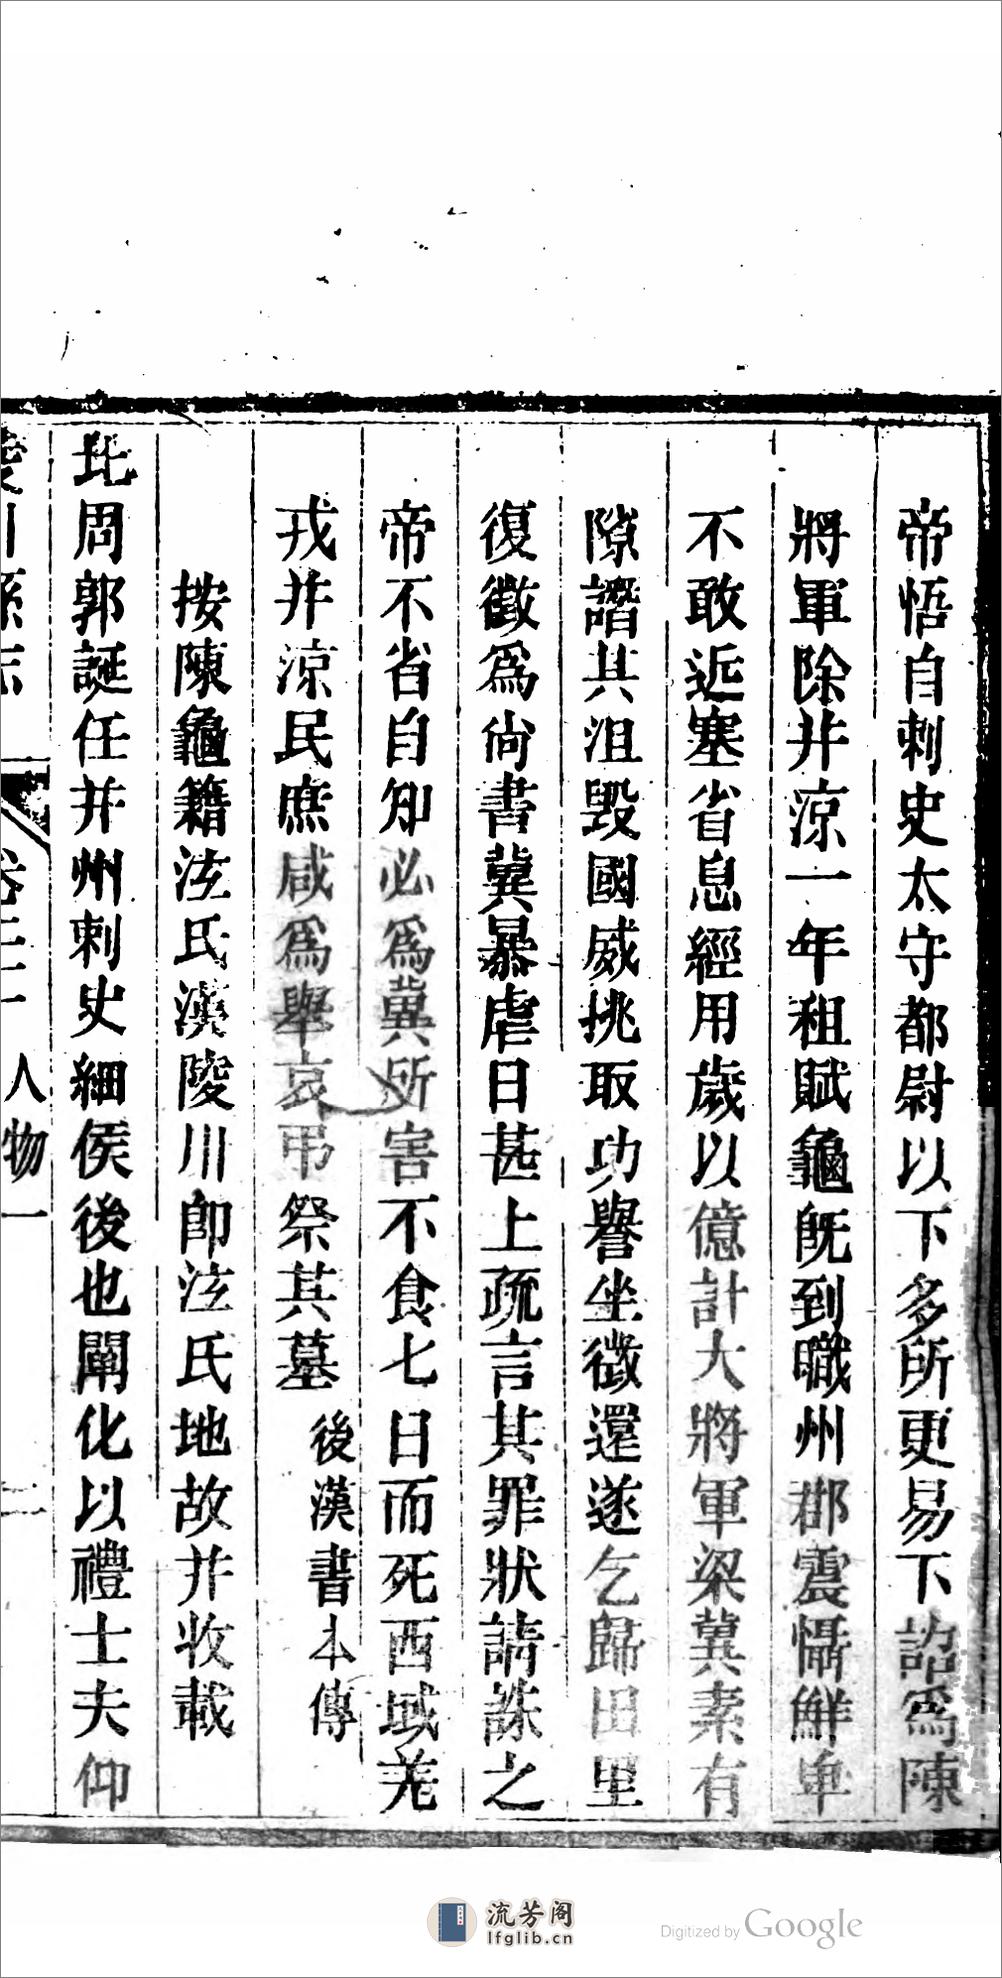 帝悟自刺史太守都尉以下多所更易下詔爲陳
將軍除并涼一年租賦龜旣到職州郡震慴鮮卑
不敢近塞省息經用歲以億計大將軍梁冀素有
隙譖其沮毀國威挑取功譽坐徵還遂乞歸田里
復徵爲尚書冀暴虐日甚上疏言其罪狀請誅之
帝不省自知必爲冀所害不食七日而死西域羌
戎并涼民庶咸爲舉哀弔祭其墓 後漢書本傳
按陳龜籍泫氏漢陵川卽泫氏地故并收載
北周郭誕任并州刺史細侯後也闡化以禮士夫仰
陵川縣志 卷二十 人物一 二
流芳阁
lfglib.cn
Digitized by Google